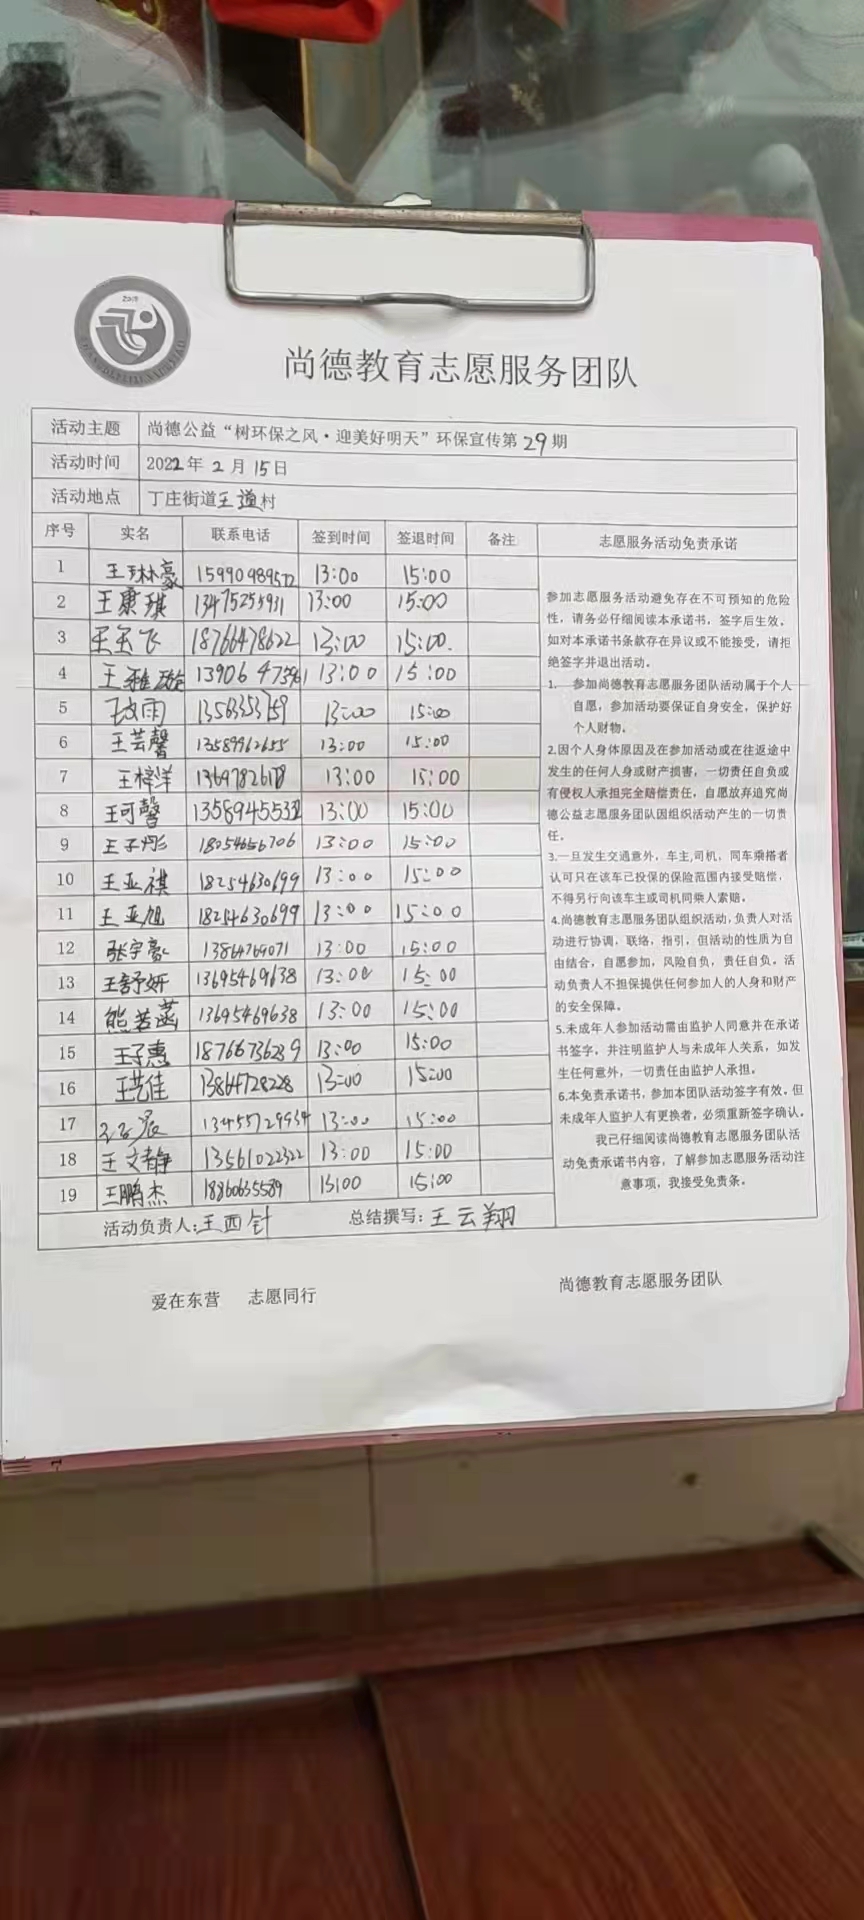 2019
尚德教育志愿服务团队
活动主题 尚德公益“树环保之风·迎美好明天”环保宣传第29期
活动时间 2022年2月15日
活动地点 丁庄街道王道村
序号 实名 联系电话 签到时间 签退时间 备注 志愿服务活动免责承诺
1 王琳豪 15990989572 13:00 15:00
2 王康琪 13475255931 13:00 15:00
3 18766478622 13:00 15:00.
4 王雅璇 13906475961 13:00 15:00
5 王文雨 13563353759 13:00 15:00
6 王芸馨 13589962655 13:00 15:00
7 王梓洋 13:00 15:00
8 王可馨 13589455332 13:00 15:00
9 王子彤 18054656706 13:00 15:00
10 王亚祺 18254630699 13:00 15:00
11 王亚旭 18254630699 13:00 15:00
12 张宇豪 13864769071 13:00 15:00
13 王舒妍 13695469638 13:00 15:00
14 熊若菡 13695469638 13:00 15:00
15 王子惠 18766736289 13:00 15:00
16 王艺佳 13864728228 13:00 15:00
17 13455729934 13:00 15:00
18 王文静 13561022322 13:00 15:00
19 王鹏杰 18860635589 13:00 15:00
活动负责人:王西针 总结撰写:王云翔
参加志愿服务活动避免存在不可预知的危险
性，请务必仔细阅读本承诺书，签字后生效。
如对本承诺书条款存在异议或不能接受，请拒
绝签字并退出活动。
1. 参加尚德教育志愿服务团队活动属于个人
自愿，参加活动要保证自身安全，保护好
个人财物。
2.因个人身体原因及在参加活动或在往返途中
发生的任何人身或财产损害，一切责任自负或
有侵权人承担完全赔偿责任，自愿放弃追究尚
德公益志愿服务团队因组织活动产生的一切责
任。
3.一旦发生交通意外，车主,司机，同车乘搭者
认可只在该车已投保的保险范围内接受赔偿，
不得另行向该车主或司机同乘人索赔。
4.尚德教育志愿服务团队组织活动,负责人对活
动进行协调，联络，指引，但活动的性质为自
由结合，自愿参加，风险自负，责任自负。活
动负责人不担保提供任何参加人的人身和财产
的安全保障。
5.未成年人参加活动需由监护人同意并在承诺
书签字，并注明监护人与未成年人关系，如发
生任何意外，一切责任由监护人承担。
6.本免责承诺书，参加本团队活动签字有效。但
未成年人监护人有更换者，必须重新签字确认。
我已仔细阅读尚德教育志愿服务团队活
动免责承诺书内容，了解参加志愿服务活动注
意事项，我接受免责条。
爱在东营 志愿同行
尚德教育志愿服务团队